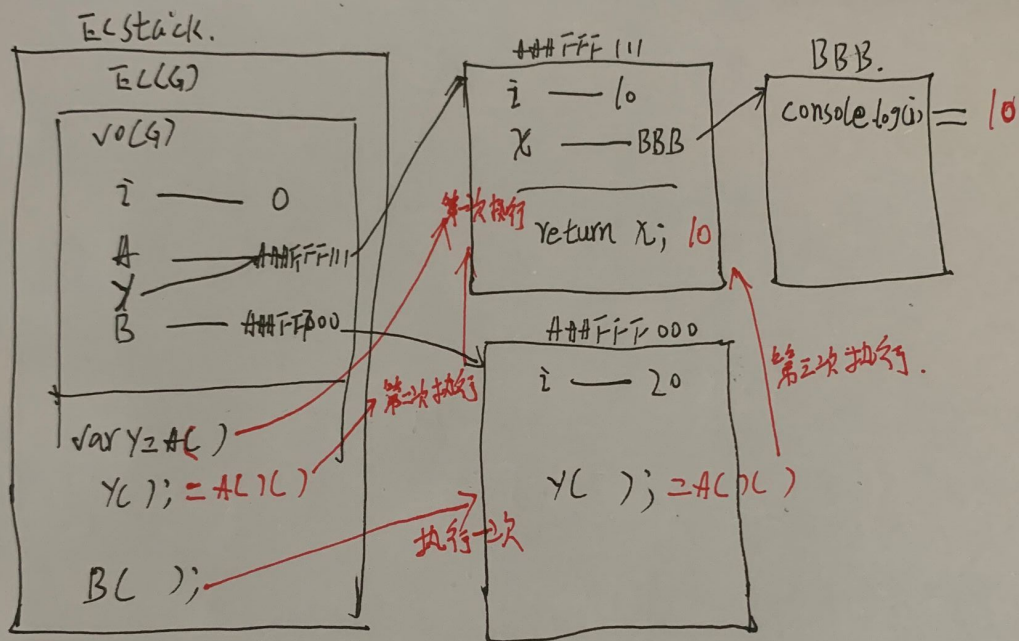 ECstack.
EC(G)
VO(G)
i — 0
A — AAAFFF111
Y
B — AAAFFF000
var Y=A( )
Y( ); =A( )( )
B( );
AAAFFF111
i — 10
X — BBB
return X; 10
BBB.
console.log(i) = 10
AAAFFF000
i — 20
Y( ); =A( )( )
第一次执行
第二次执行
第三次执行.
执行一次